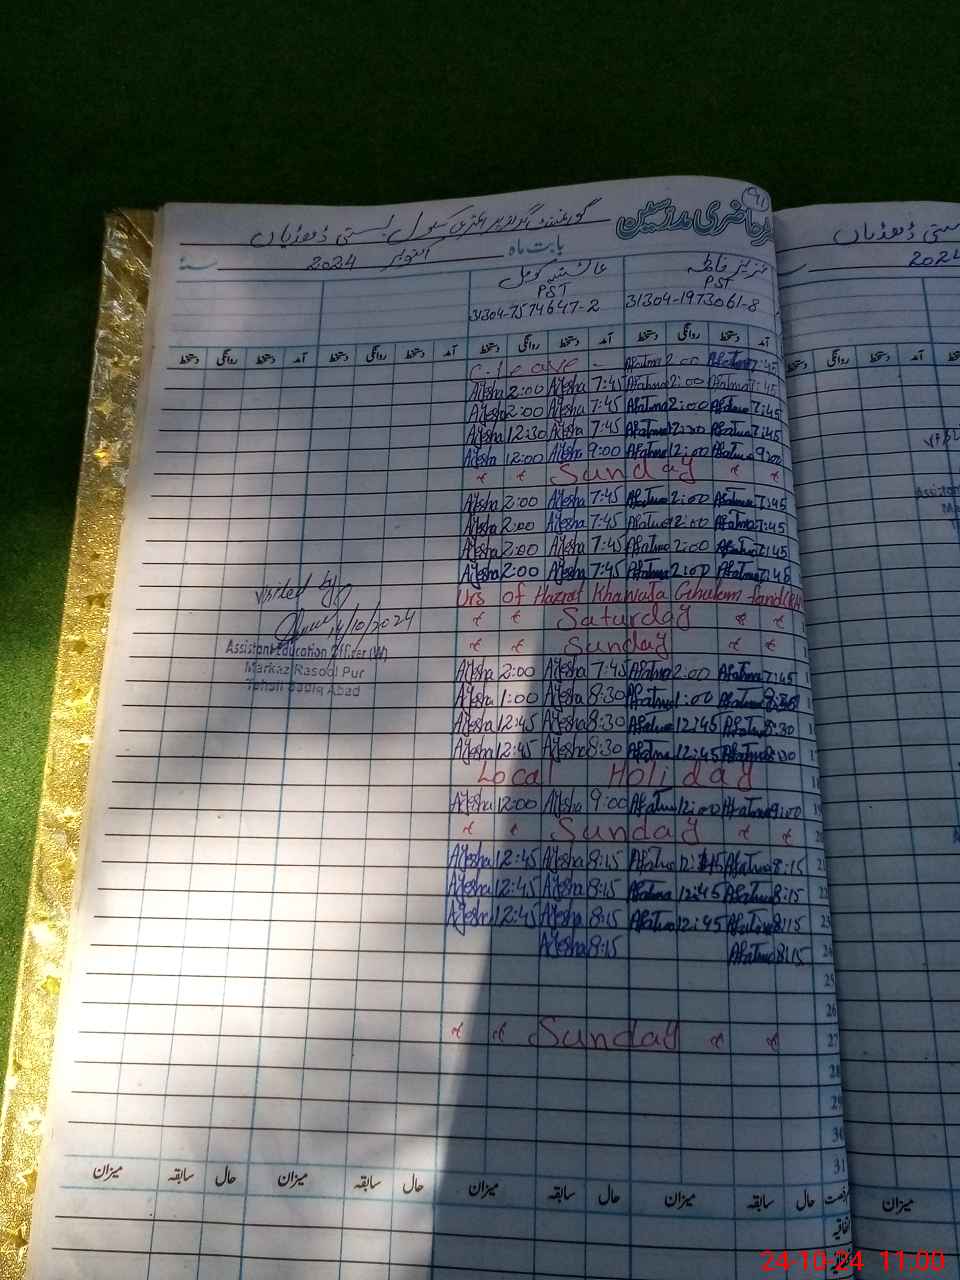 91
رجسٹر حاضری مدرسین گورنمنٹ گرلز پرائمری سکول بستی ڈھڈیاں
بابت ماہ اکتوبر 2024
عزیز فاطمہ عائشہ کومل
PST PST
31304-1973061-8 31304-7574647-2
آمد دستخط روانگی دستخط آمد دستخط روانگی دستخط آمد دستخط روانگی دستخط آمد دستخط روانگی دستخط
C. leave - Afatma 2:00 Afatma 7:45
Ayesha 2:00 Ayesha 7:45 Afatma 2:00 Afatma 7:45
Ayesha 2:00 Ayesha 7:45 Afatma 2:00 Afatma 7:45
Ayesha 12:30 Ayesha 7:45 Afatma 12:30 Afatma 7:45
Ayesha 12:00 Ayesha 9:00 Afatma 12:00 Afatma 9:00
Sunday
Ayesha 2:00 Ayesha 7:45 Afatma 2:00 Afatma 7:45
Ayesha 2:00 Ayesha 7:45 Afatma 2:00 Afatma 7:45
Ayesha 2:00 Ayesha 7:45 Afatma 2:00 Afatma 7:45
Ayesha 2:00 Ayesha 7:45 Afatma 2:00 Afatma 7:45
Urs of Hazrat Khawaja Ghulam
Saturday
Sunday
visited by
14/10/2024
Assistant Education Officer (W)
Markaz Rasool Pur
Tehsil Sadiq Abad
Ayesha 2:00 Ayesha 7:45 Afatma 2:00 Afatma 7:45
Ayesha 1:00 Ayesha 8:30 Afatma 1:00 Afatma 8:30
Ayesha 12:45 Ayesha 8:30 Afatma 12:45 Afatma 8:30
Ayesha 12:45 Ayesha 8:30 Afatma 12:45 Afatma 8:30
Local Holiday
Ayesha 12:00 Ayesha 9:00 Afatma 12:00 Afatma 9:00 19
Sunday 20
Ayesha 12:45 Ayesha 8:15 Afatma 12:45 Afatma 8:15 21
Ayesha 12:45 Ayesha 8:15 Afatma 12:45 Afatma 8:15 22
Ayesha 12:45 Ayesha 8:15 Afatma 12:45 Afatma 8:15 23
Ayesha 8:15 Afatma 8:15 24
25
26
Sunday 27
28
29
30
31
حال سابقہ میزان حال سابقہ میزان حال سابقہ میزان حال سابقہ میزان
اتفاقیہ
بستی ڈھڈیاں
2024
آمد دستخط روانگی دستخط
میزان
24-10-24 11:00